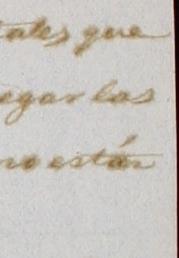 tales que
egar las
no están